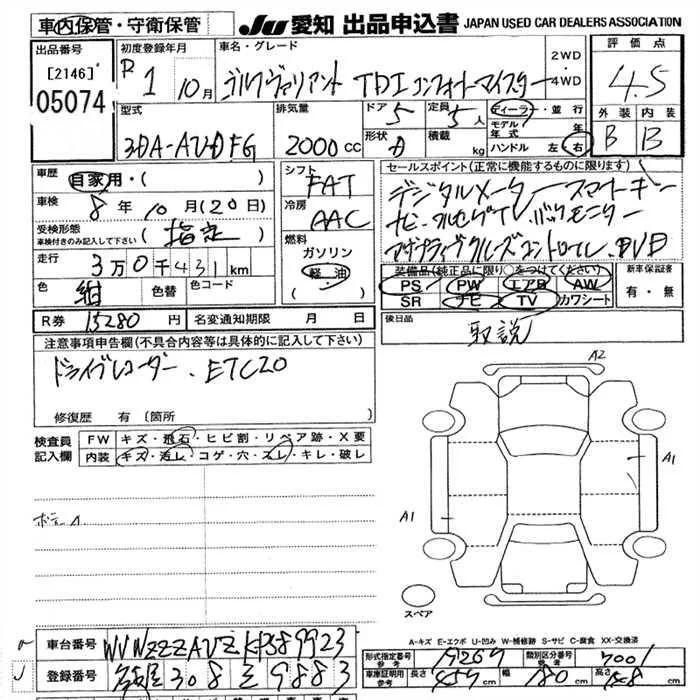 車内保管・守衛保管
JU 愛知 出品申込書 JAPAN USED CAR DEALERS ASSOCIATION
出品番号
[2146]
05074
初度登録年月
R 1 10月
車名・グレード
ゴルフヴァリアント TDI コンフォートマイスター
2WD
4WD
評価点
4.5
外装 内装
B B
型式
3DA-AUDFG
排気量
2000 cc
ドア 5
定員 5人
形状
積載 kg
ディーラー・並行
モデル年式 年
ハンドル 左 右
車歴
自家用・( )
車検
8年10月(20日)
受検形態
車検付きのみ記入して下さい
(指定)
走行
3万0千431km
色 紺
色替
色コード
シフト
FAT
冷房
AAC
燃料
ガソリン
軽油
セールスポイント(正常に機能するものに限ります)
デジタルメーター スマートキー
ナビ・フルセグTV バックモニター
アダプティブクルーズコントロール・DVD
装備品(純正品に限り○をつけてください)
PS PW エアB AW
SR ナビ TV カワシート
新車保証書
有・無
R券 15280円
名変通知期限 月 日
後日品
取説
注意事項申告欄(不具合内容等は具体的に記入して下さい)
ドライブレコーダー・ETC20
修復歴 有 (箇所
検査員記入欄
FW キズ・飛石・ヒビ割・リペア跡・X要
内装 キズ・汚レ・コゲ・穴・スレ・キレ・破レ
A2
A1
A1
スペア
A-キズ E-エクボ U-凹み W-補修跡 S-サビ C-腐食 XX-交換済
車台番号 WVWZZZAUZKP389923
登録番号 名古屋 308 9883
形式指定番号 参考 19267
類別区分番号 参考 7001
車庫証明用 参考 長さ 459 幅 180 高さ 148